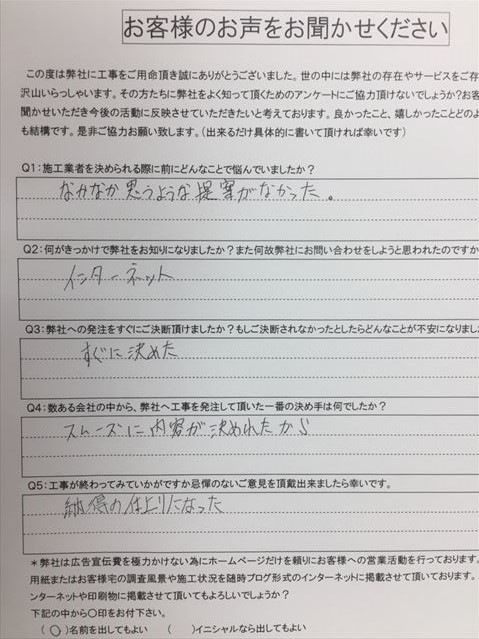 お客様のお声をお聞かせください
この度は弊社に工事をご用命頂き誠にありがとうございました。世の中には弊社の存在やサービスをご存
沢山いらっしゃいます。その方たちに弊社をよく知って頂くためのアンケートにご協力頂けないでしょうか?お客
聞かせいただき今後の活動に反映させていただきたいと考えております。良かったこと、嬉しかったことどのよ
も結構です。是非ご協力お願い致します。(出来るだけ具体的に書いて頂ければ幸いです)
Q1:施工業者を決められる際に前にどんなことで悩んでいましたか?
なかなか思うような提案がなかった。
Q2:何がきっかけで弊社をお知りになりましたか?また何故弊社にお問い合わせをしようと思われたのですか
インターネット
Q3:弊社への発注をすぐにご決断頂けましたか?もしご決断されなかったとしたらどんなことが不安になりまし
すぐに決めた
Q4:数ある会社の中から、弊社へ工事を発注して頂いた一番の決め手は何でしたか?
スムーズに内容が決めれたから
Q5:工事が終わってみていかがですか忌憚のないご意見を頂戴出来ましたら幸いです。
納得の仕上りになった
*弊社は広告宣伝費を極力かけない為にホームページだけを頼りにお客様への営業活動を行っております。
用紙またはお客様宅の調査風景や施工状況を随時ブログ形式のインターネットに掲載させて頂いております。
ンターネットや印刷物に掲載させて頂いてもよろしいでしょうか?
下記の中から〇印をお付下さい。
(〇)名前を出してもよい ( )イニシャルなら出してもよい